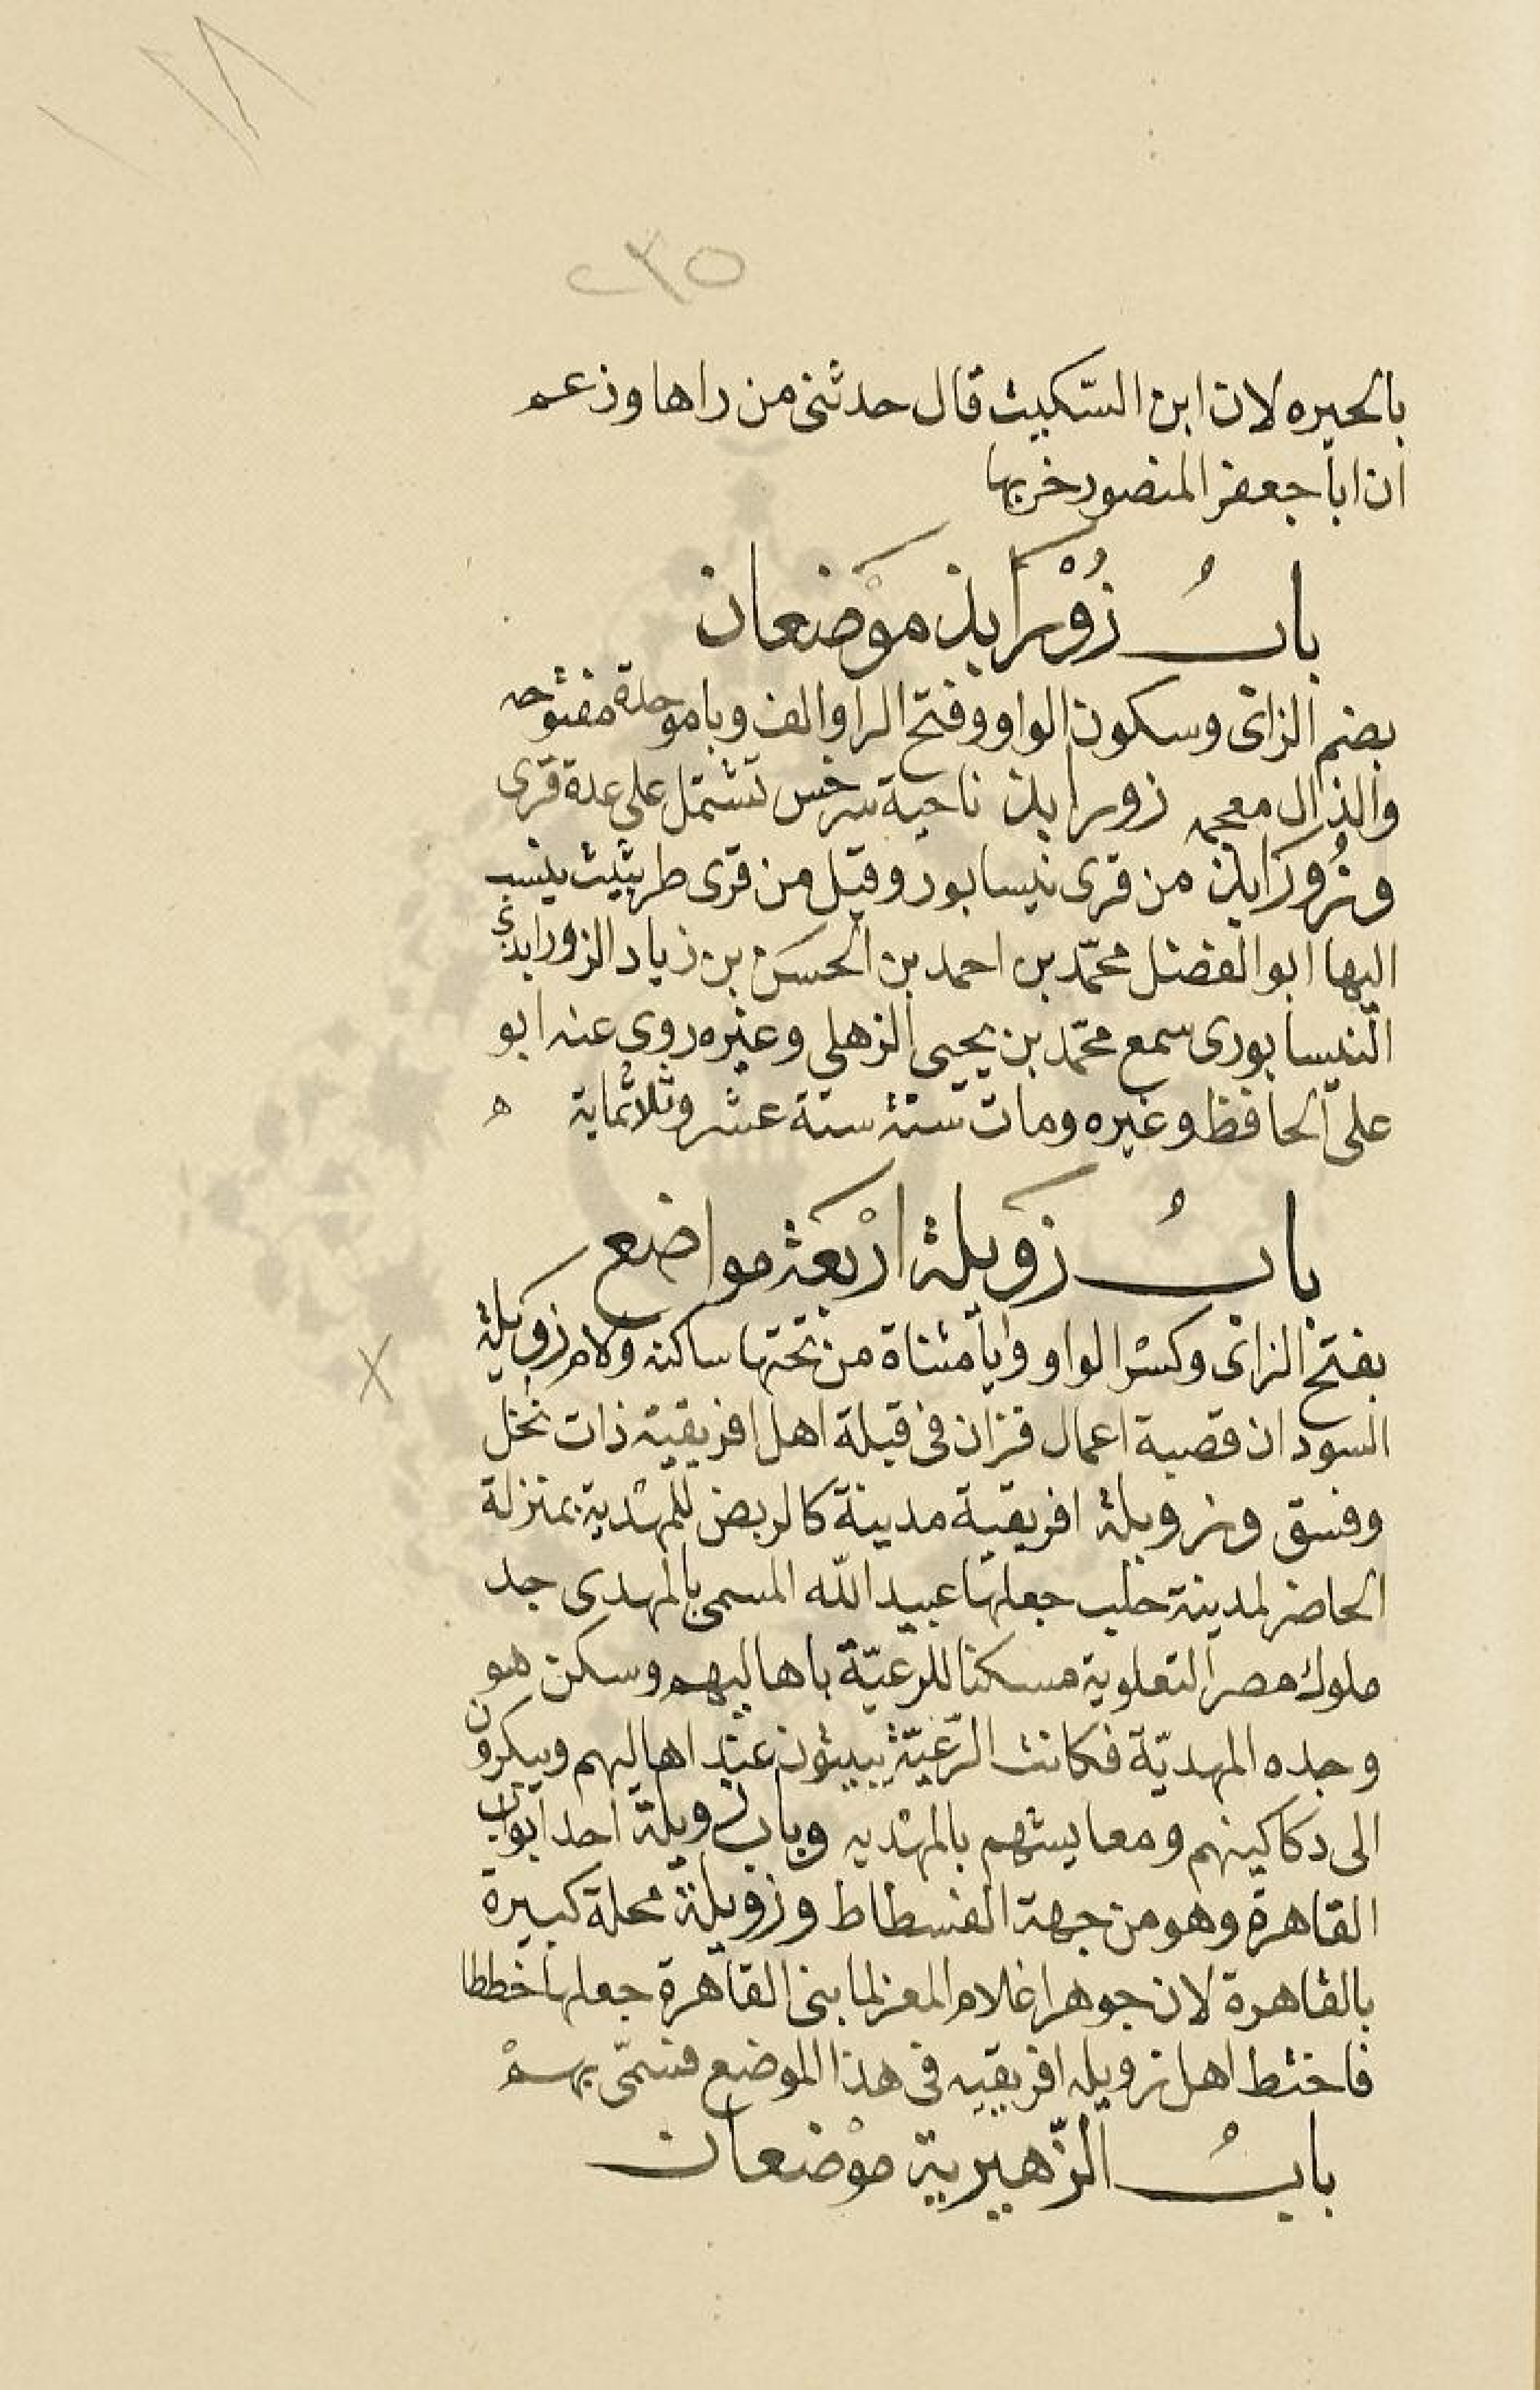 ٢٣٥
بالحيره لان ابن السّكيت قال حدثني من راها وزعم
ان ابا جعفر المنصور خربها
بابُ زُوْرَابذ موْضعان
بضم الزاى وسكون الواو وفتح الرا والف وبا موحدة مفتوحه
والذال معجمه زورابذ ناحية سرخس تشتمل على عدة قرى
وزُورَابذ من قرى نيسابور وقيل من قرى طريثيث ينسب
اليها ابو الفضل محمّد بن احمد بن الحسن بن زياد الزورابذي
النيسابورى سمع محمّد بن يحيى الزهلي وغيره روى عنه ابو
على الحافظ وغيره ومات سنة ستة عشر وثلاثماية ه
بابُ زَويلة ارْبَعَة مواضع
بفتح الزاى وكسر الواو ويا مثناة من تحتها ساكنه ولام زويلة
السودان قصبة اعمال فزان فى قبلة اهل افريقية ذات نخل
وفسق وزويلة افريقية مدينة كالربض للمهْدية بمنزلة
الحاضر لمدينة حلب جعلها عبيد الله المسمى بالمهدى جد
ملوك مصر التعلوية مسكنا للرعيّة باهاليهم وسكن هو
وجده المهديّة فكانت الرّعيّة يبيتون عند اهاليهم ويبكرون
الى دكاكينهم ومعايشهم بالمهْديه وباب زويلة احد ابواب
القاهرة وهو من جهة الفسطاط وزويلة محلة كبيرة
بالقاهرة لان جوهرا غلام المعز لما بنى القاهرة جعلها خططا
فاختط اهل زويله افريقيه فى هذا الموضع فسمّى بهمْ
بابُ الزّهيرية موْضعان